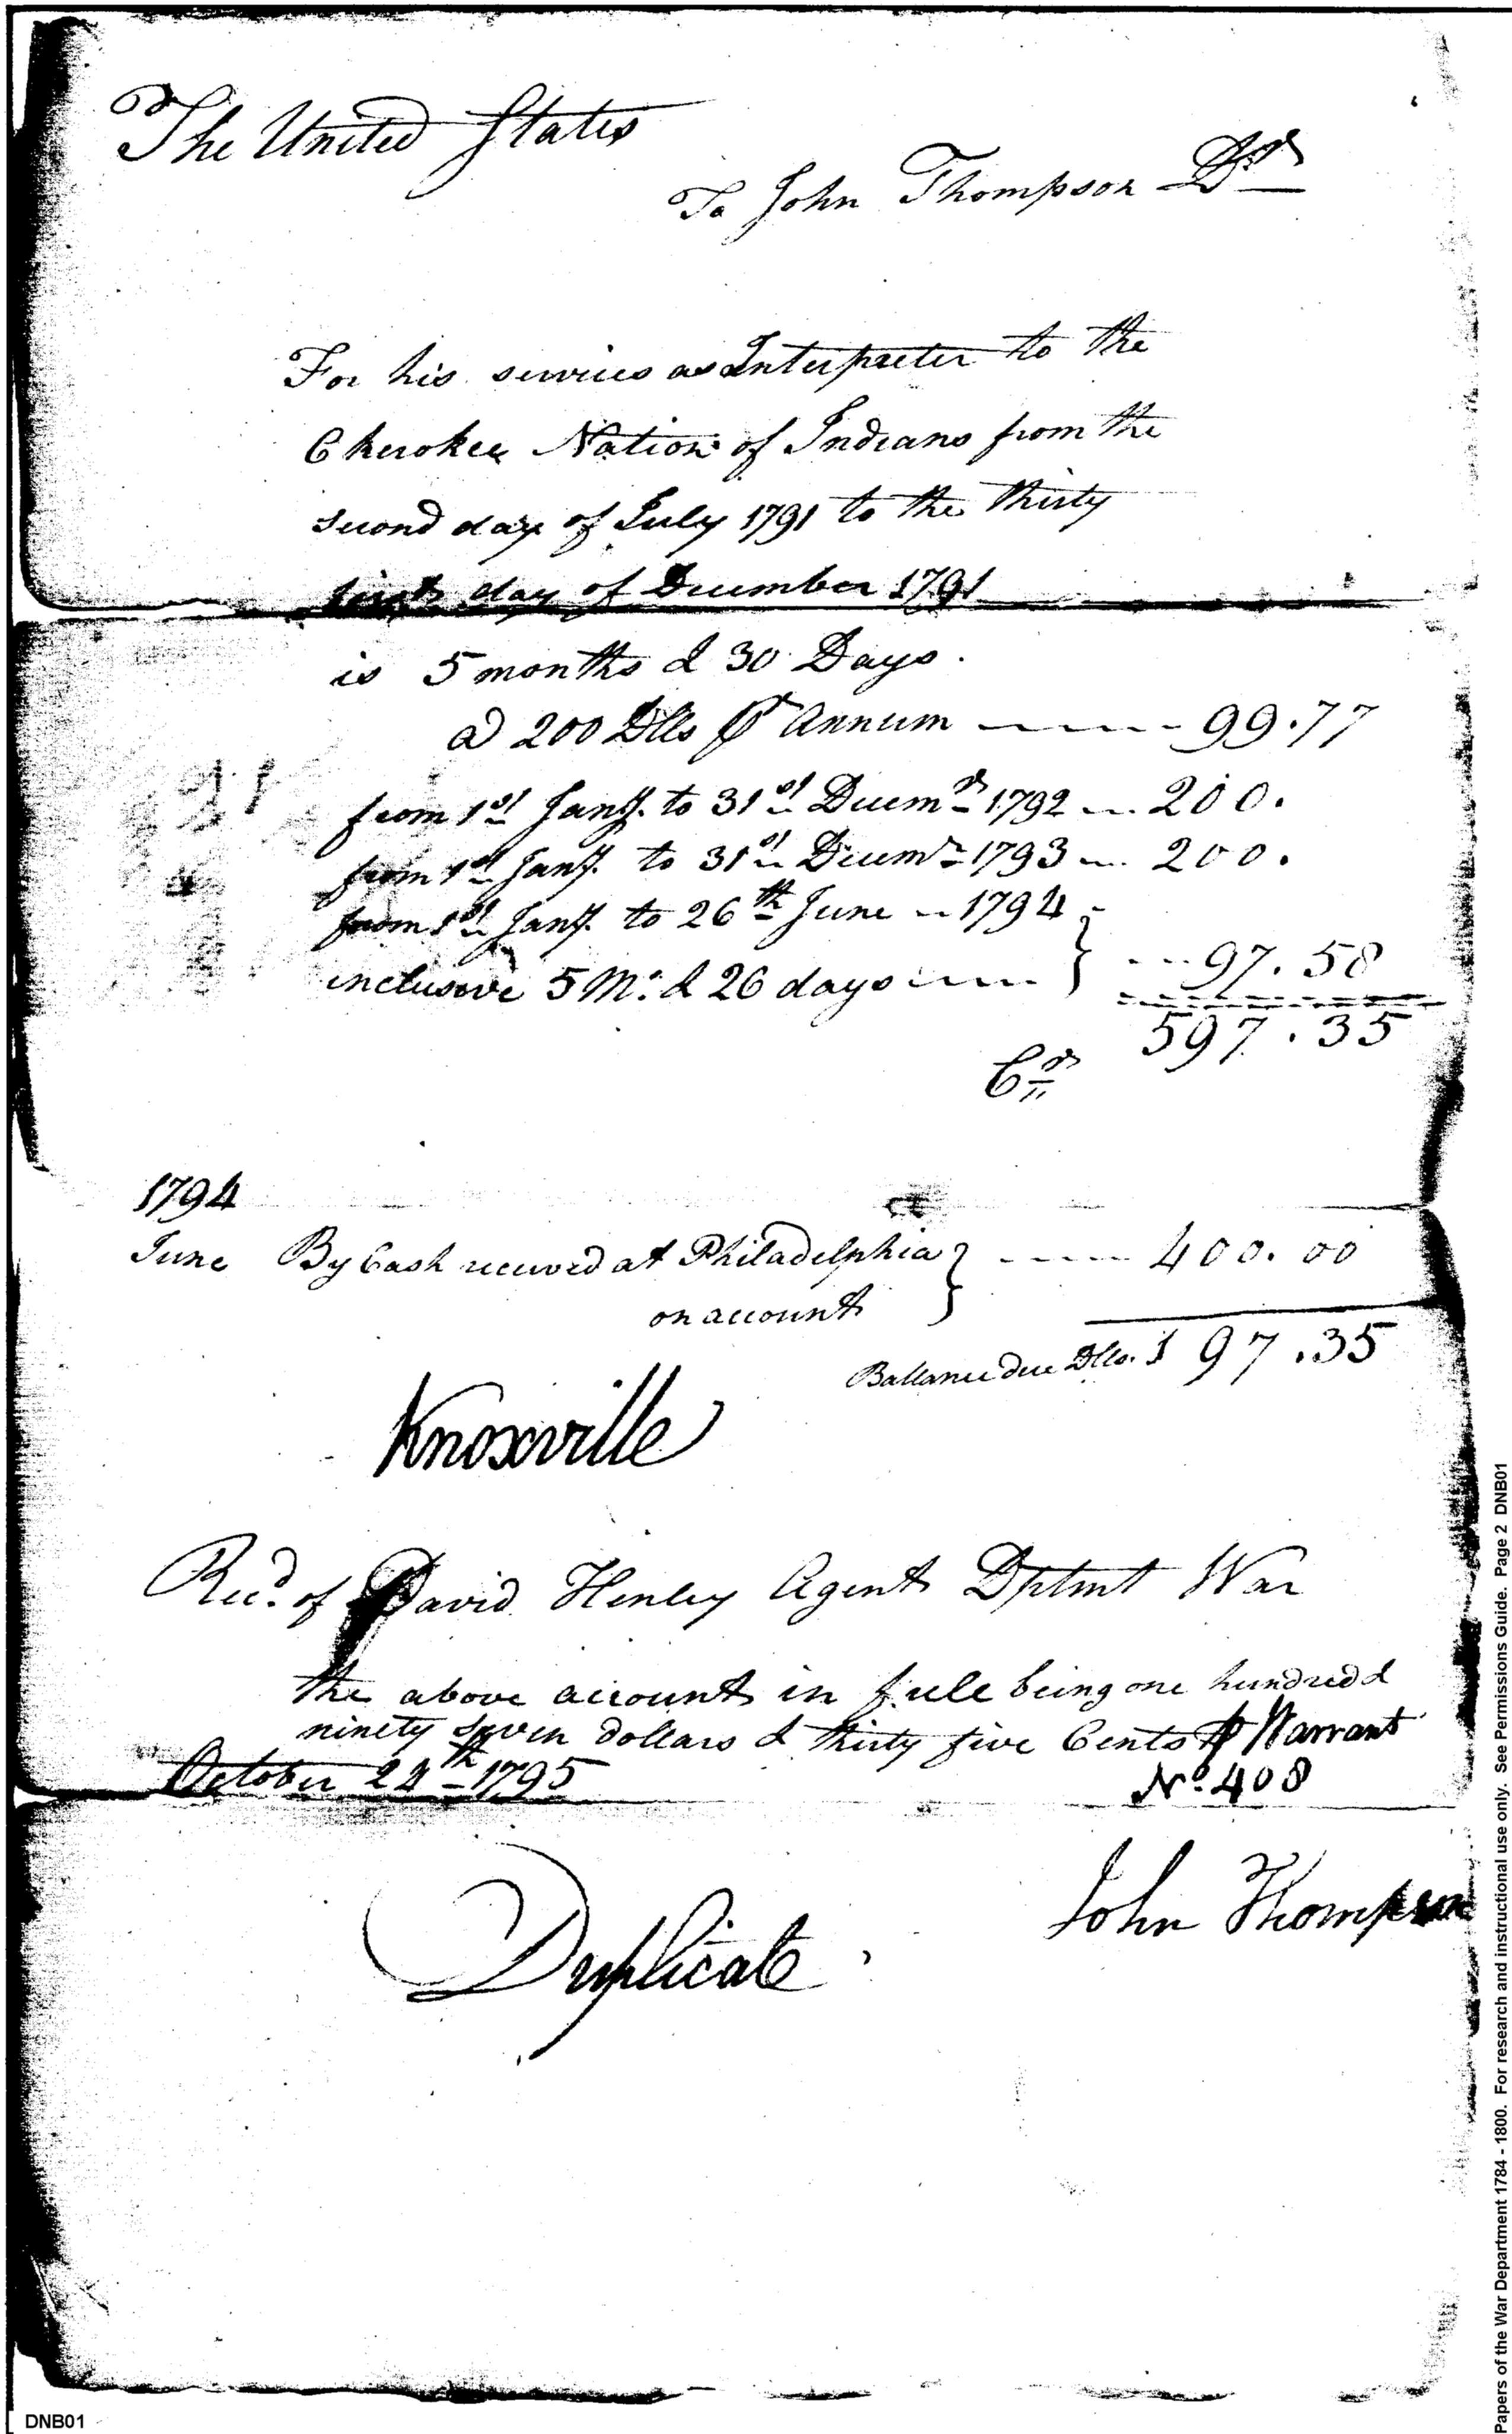 The United States
To John Thompson Dr
For his services as Interpreter to the
Cherokee Nation of Indians from the
second day of July 1791 to the thirty
first day of December 1791
is 5 months & 30 Days.
@ 200 Dlls Pr Annum 99.77
from 1st Jany. to 31st Decemr 1792 200.
from 1st Jany. to 31st Decemr 1793 200.
from 1st Jany. to 26th June 1794
inclusive 5 Mo. & 26 days 97.58
597.35
Cr
1794
June By Cash received at Philadelphia 400.00
on account
Ballance due Dlls. 197.35
Knoxville
Recd. of David Henley Agent Dptmt War
the above account in full being one hundred &
ninety seven dollars & thirty five Cents Pr Warrant
October 24th 1795 No. 408
John Thompson
Duplicate
DNB01
Papers of the War Department 1784 - 1800. For research and instructional use only. See Permissions Guide. Page 2 DNB01